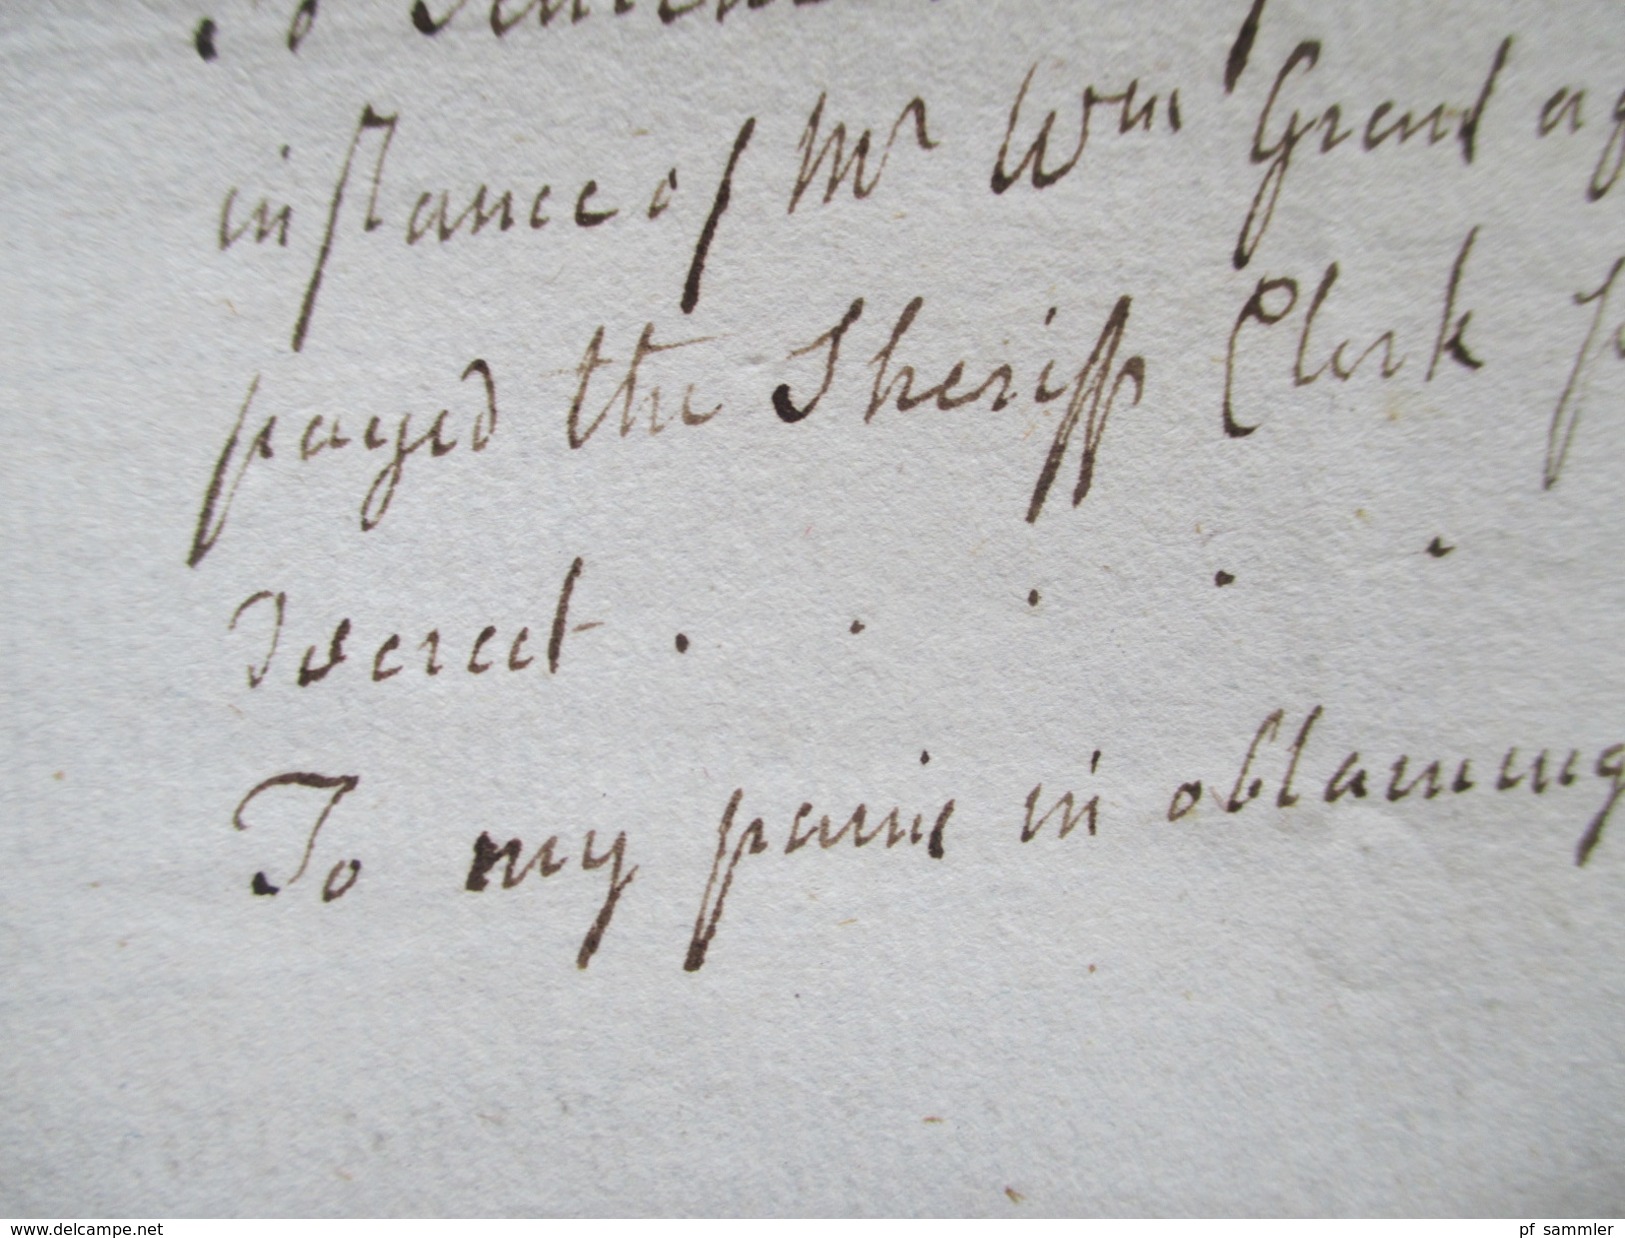 To
instance of Mr Wm Grant ag
payed the Sheriff Clerk fo
decreet . . . . .
To my pains in obtaining
www.delcampe.net
pf_sammler